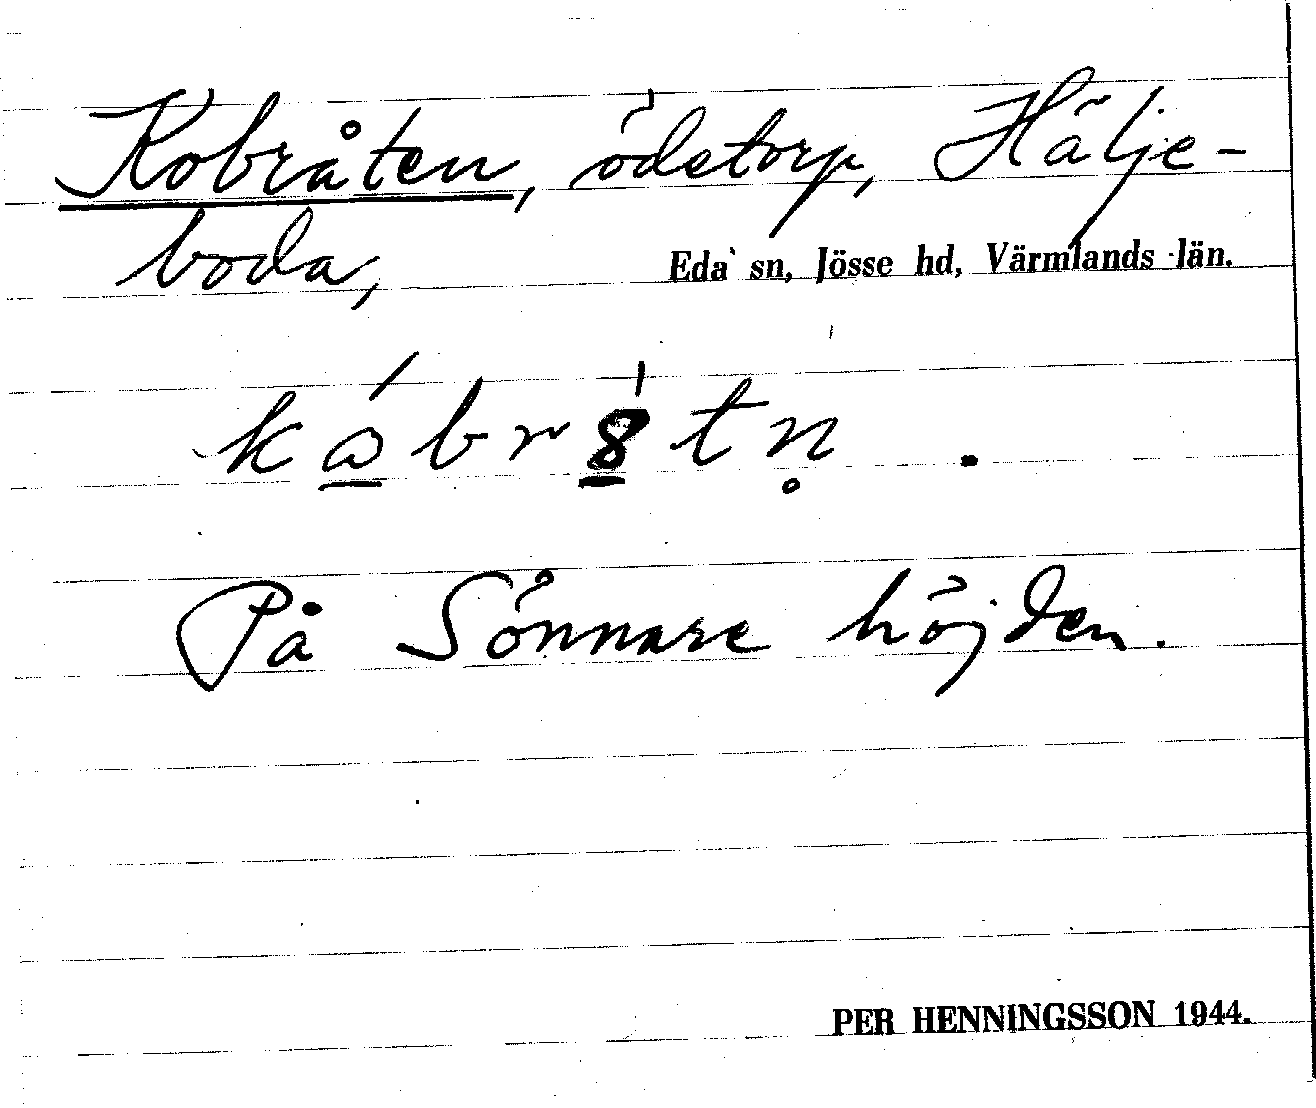 Kobråten, ödetorp, Hälje-
boda,
Eda sn, Jösse hd, Värmlands län.
På Sönnare höjden.
PER HENNINGSSON 1944.